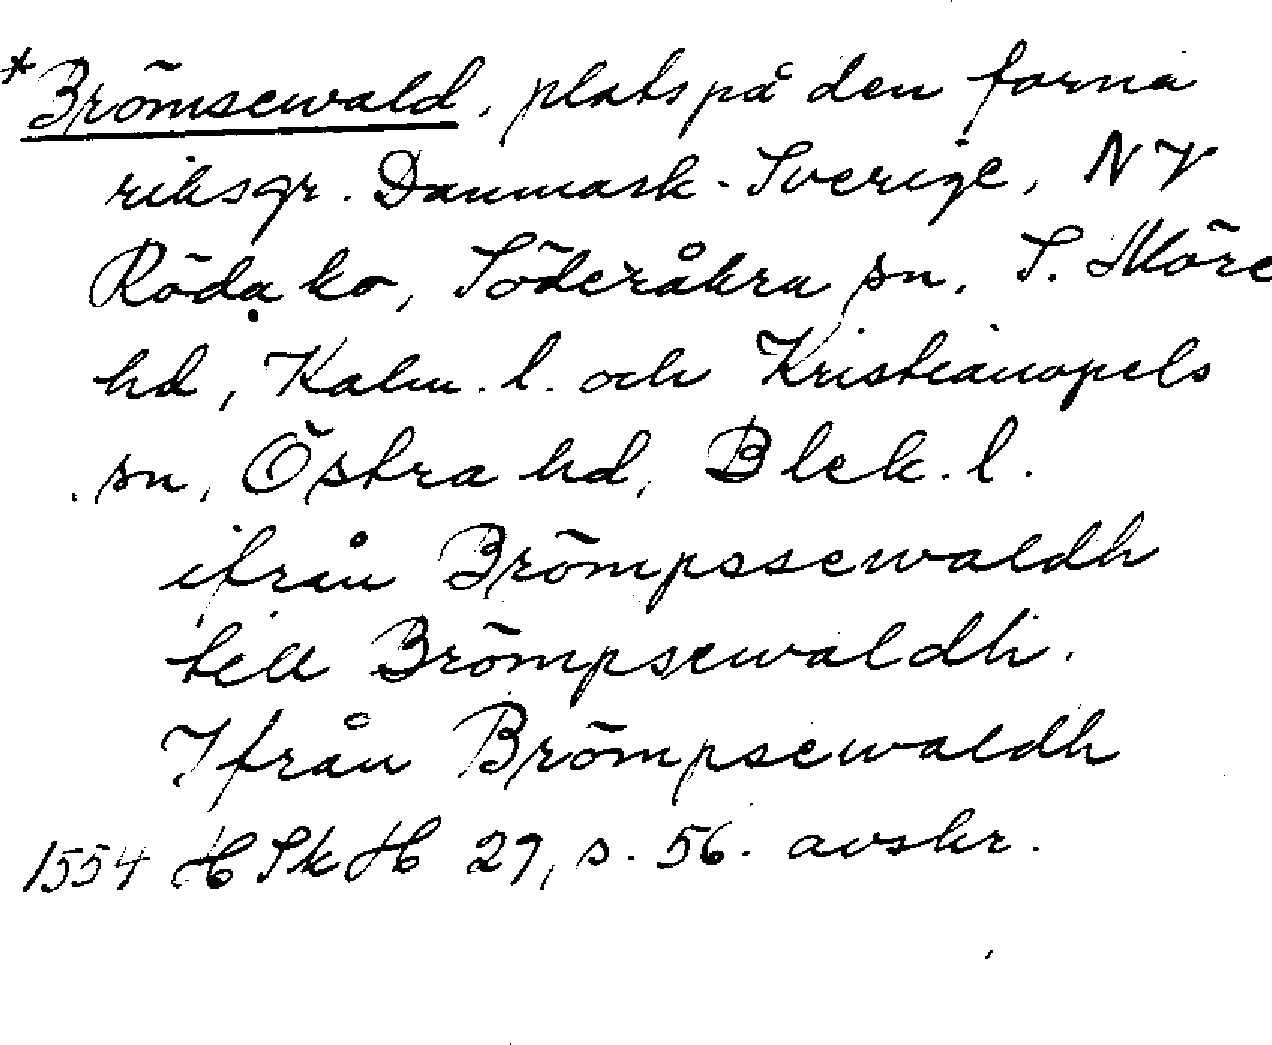 *Brömsewald, plats på den forna
riksgr. Danmark-Sverige, NV
Röda ko, Söderåkra sn, S. Möre
hd, Kalm. l. och Kristianopels
sn, Östra hd, Blek. l.
ifrån Brömpssewaldh
till Brömpsewaldh.
Ifrån Brömpsewaldh
1554 HSkH 29, s. 56. avskr.